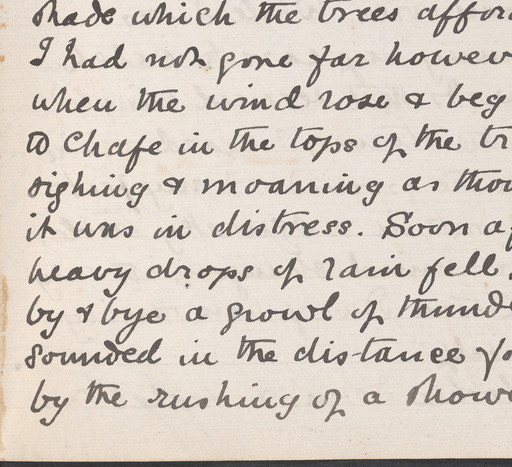 shade which the trees affor
I had not gone far howev
when the wind rose & beg
to chafe in the tops of the tr
sighing & moaning as thou
it was in distress. Soon af
heavy drops of rain fell,
by & bye a growl of thunde
sounded in the distance fo
by the rushing of a showe